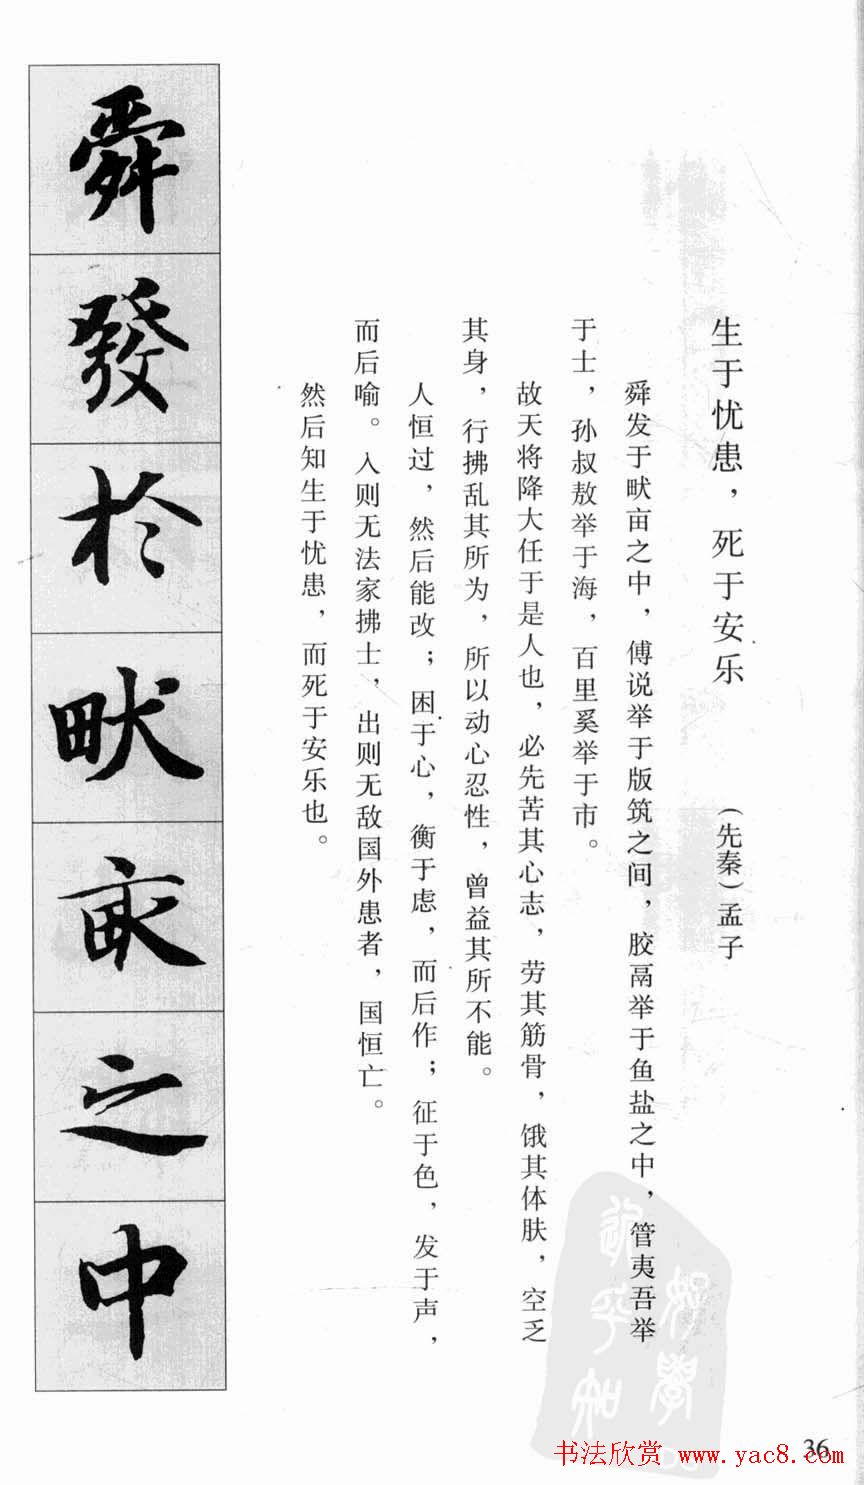 生于忧患，死于安乐 （先秦）孟子
舜发于畎亩之中，傅说举于版筑之间，胶鬲举于鱼盐之中，管夷吾举
于士，孙叔敖举于海，百里奚举于市。
故天将降大任于是人也，必先苦其心志，劳其筋骨，饿其体肤，空乏
其身，行拂乱其所为，所以动心忍性，曾益其所不能。
人恒过，然后能改；困于心，衡于虑，而后作；征于色，发于声，
而后喻。入则无法家拂士，出则无敌国外患者，国恒亡。
然后知生于忧患，而死于安乐也。
舜發於畎畝之中
36
书法欣赏 www.yac8.com